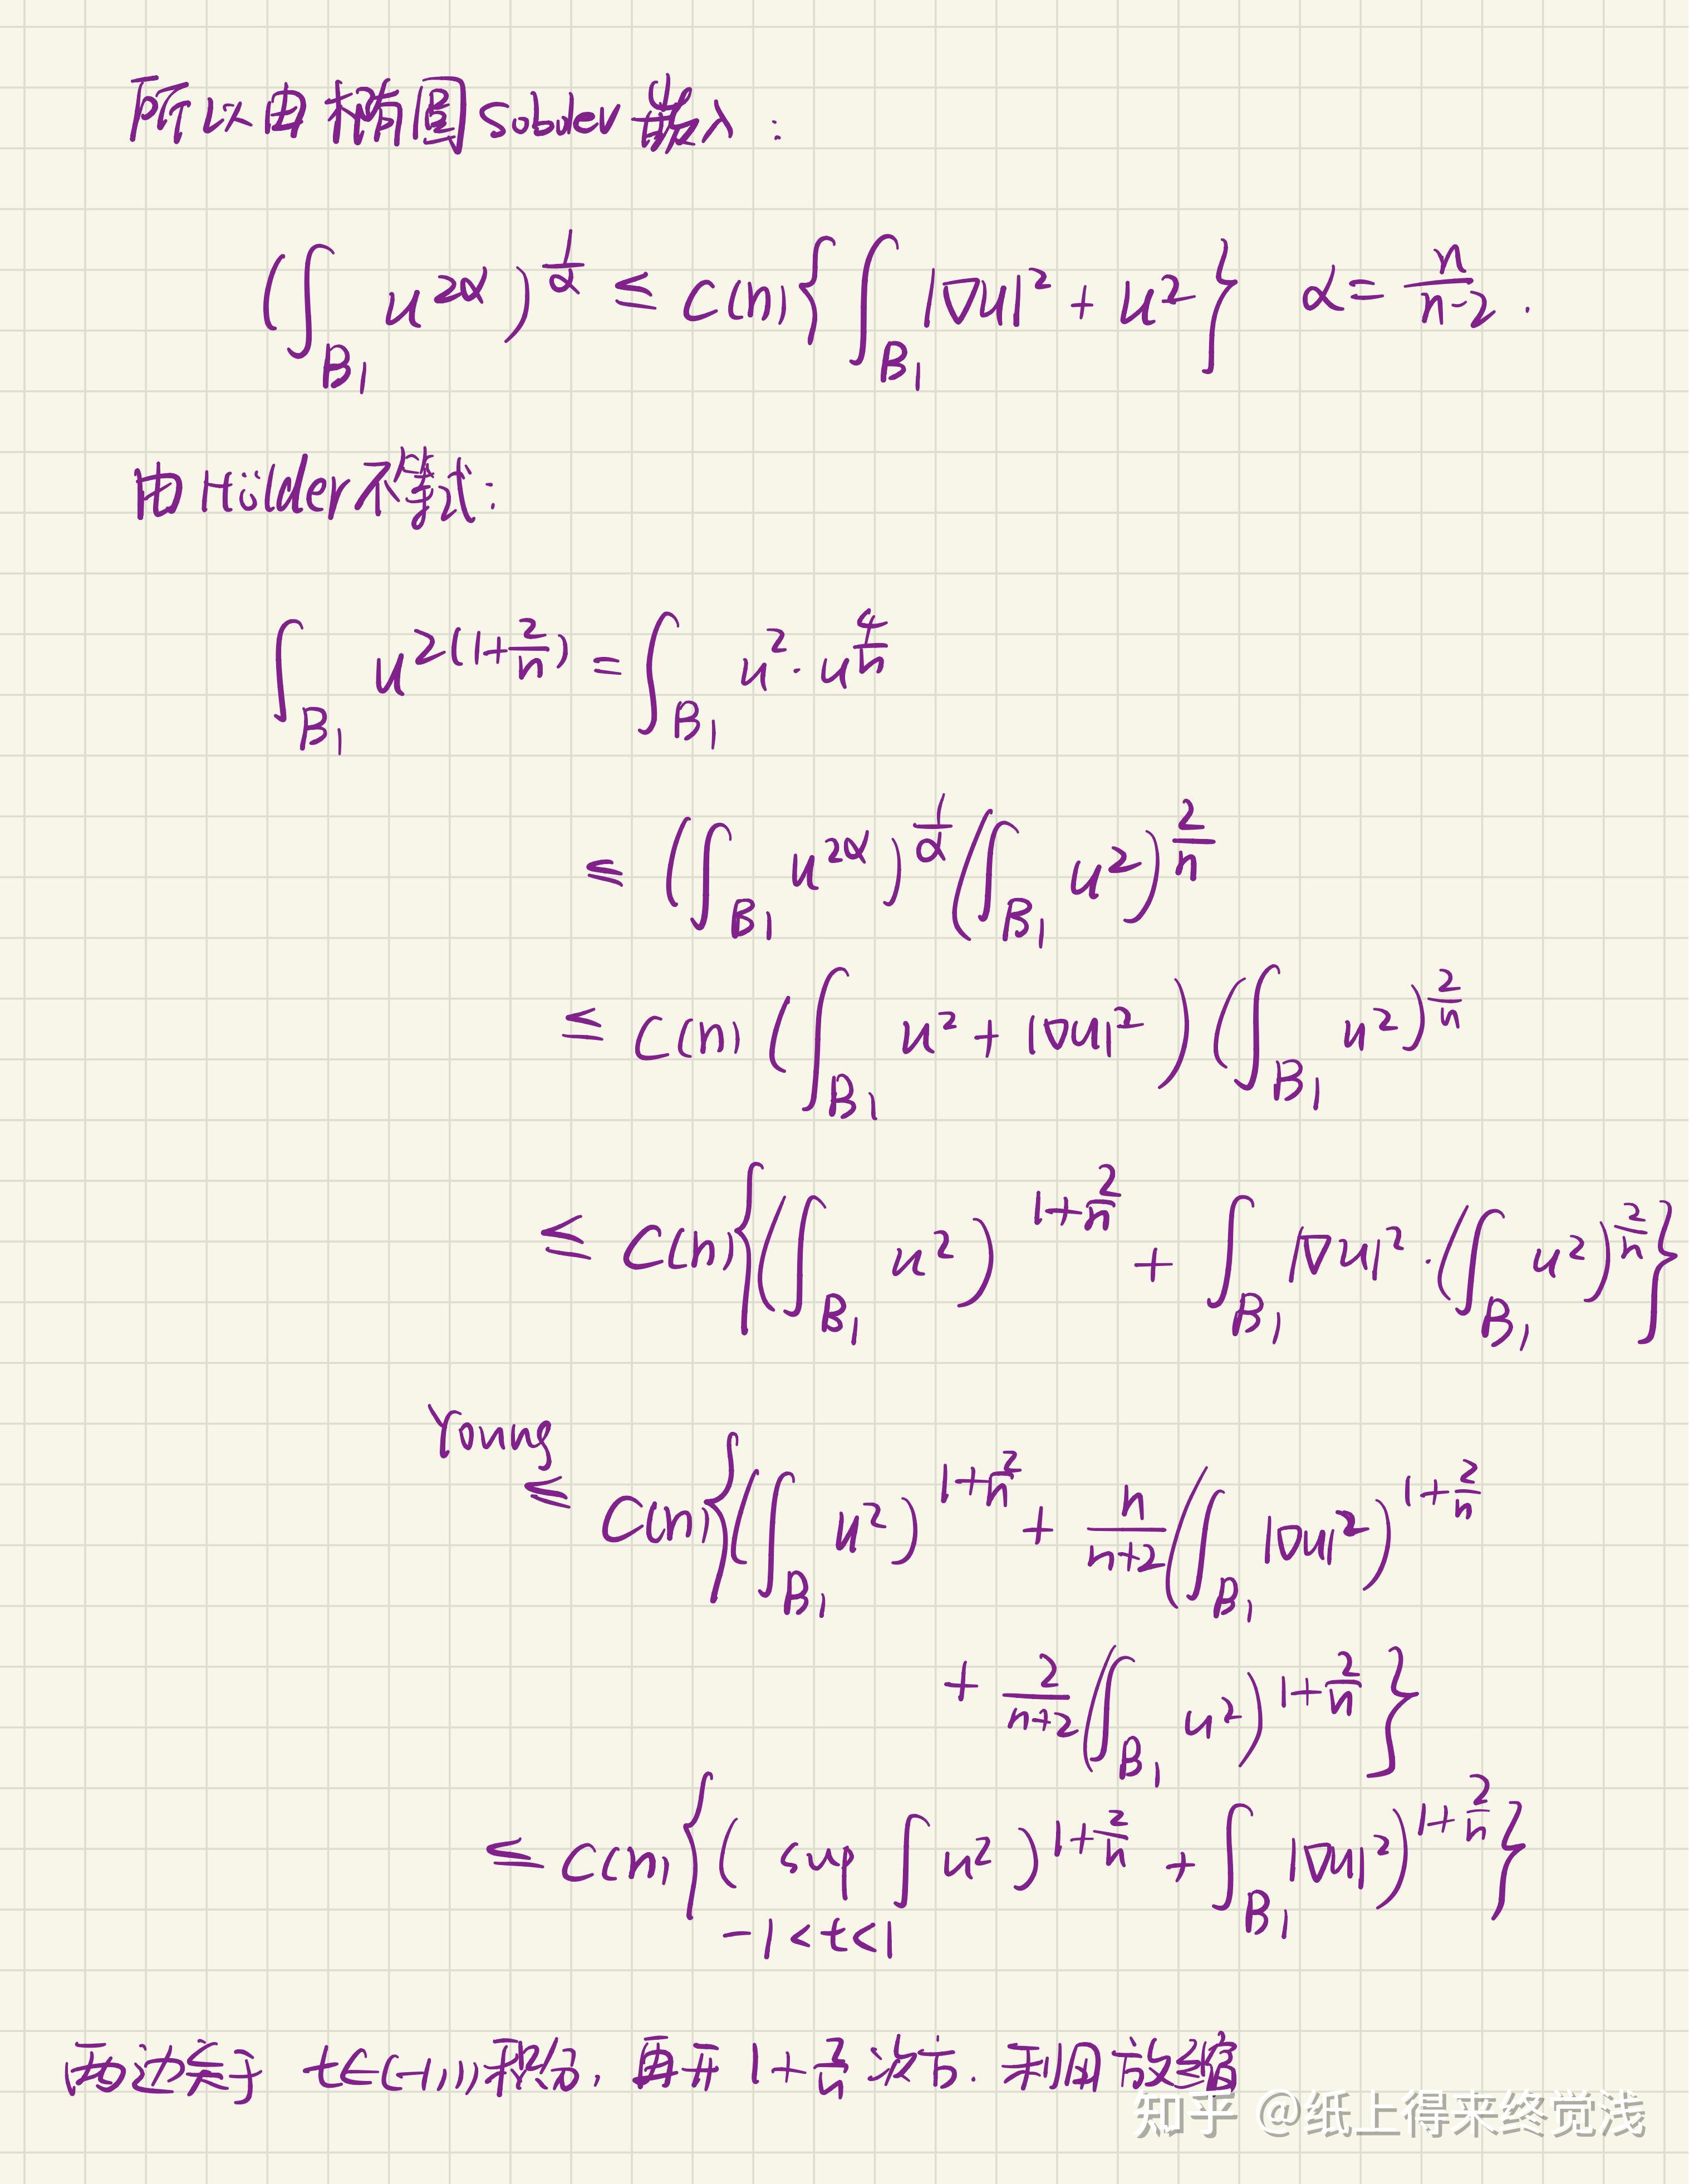 所以由椭圆Sobolev嵌入:
(∫_{B_1} u^{2α})^{1/α} ≤ C(n){∫_{B_1} |∇u|^2 + u^2} α = n/(n-2) .
由Hölder不等式:
∫_{B_1} u^{2(1+2/n)} = ∫_{B_1} u^2 · u^{4/n}
≤ (∫_{B_1} u^{2α})^{1/α} (∫_{B_1} u^2)^{2/n}
≤ C(n) (∫_{B_1} u^2 + |∇u|^2) (∫_{B_1} u^2)^{2/n}
≤ C(n){(∫_{B_1} u^2)^{1+2/n} + ∫_{B_1} |∇u|^2 · (∫_{B_1} u^2)^{2/n}}
Young
≤ C(n){(∫_{B_1} u^2)^{1+2/n} + n/(n+2) (∫_{B_1} |∇u|^2)^{1+2/n}
+ 2/(n+2) (∫_{B_1} u^2)^{1+2/n}}
≤ C(n){( sup_{-1<t<1} ∫ u^2 )^{1+2/n} + ∫_{B_1} |∇u|^2)^{1+2/n}}
两边关于 t∈(-1,1)积分, 再开 1+2/n 次方. 利用放缩
知乎 @纸上得来终觉浅